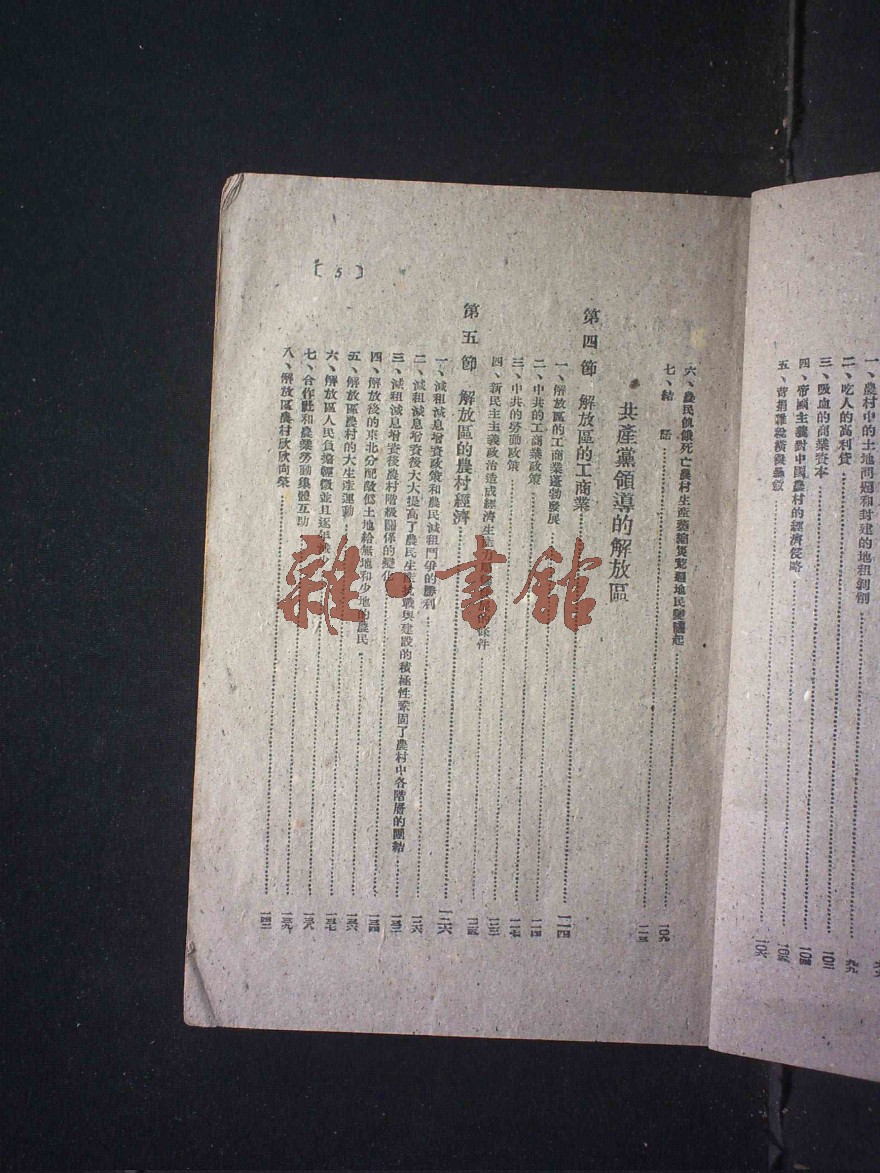 一、農村中的土地問題和封建的地租剝削
二、吃人的高利貸……九九
三、吸血的商業資本……一〇二
四、帝國主義對中國農村的經濟侵略……一〇四
五、苛捐雜稅橫徵暴斂……一〇六
六、農民飢餓死亡農村生產萎縮災荒遍地民變蠭起……一〇九
七、結 語……一一三
共產黨領導的解放區
第四節 解放區的工商業……一一四
一、解放區的工商業蓬勃發展
二、中共的工商業政策……一一四
三、中共的勞動政策……一一七
四、新民主主義政治造成經濟生 條件
第五節 解放區的農村經濟……一二六
一、減租減息增資政策和農民減租鬥爭的勝利……一二六
二、減租減息增資後大大提高了農民生產 戰與建設的積極性鞏固了農村中各階層的團結
三、減租減息增資後農村階級關係的變化
四、解放後的東北分配敵偽土地給無地和少地的農民……一三四
五、解放區農村的大生產運動……一三六
六、解放區人民負擔輕微並且逐年減少……一三七
七、合作社和農業勞動集體互助……一三八
八、解放區農村欣欣向榮……
〔5〕
雜·書館